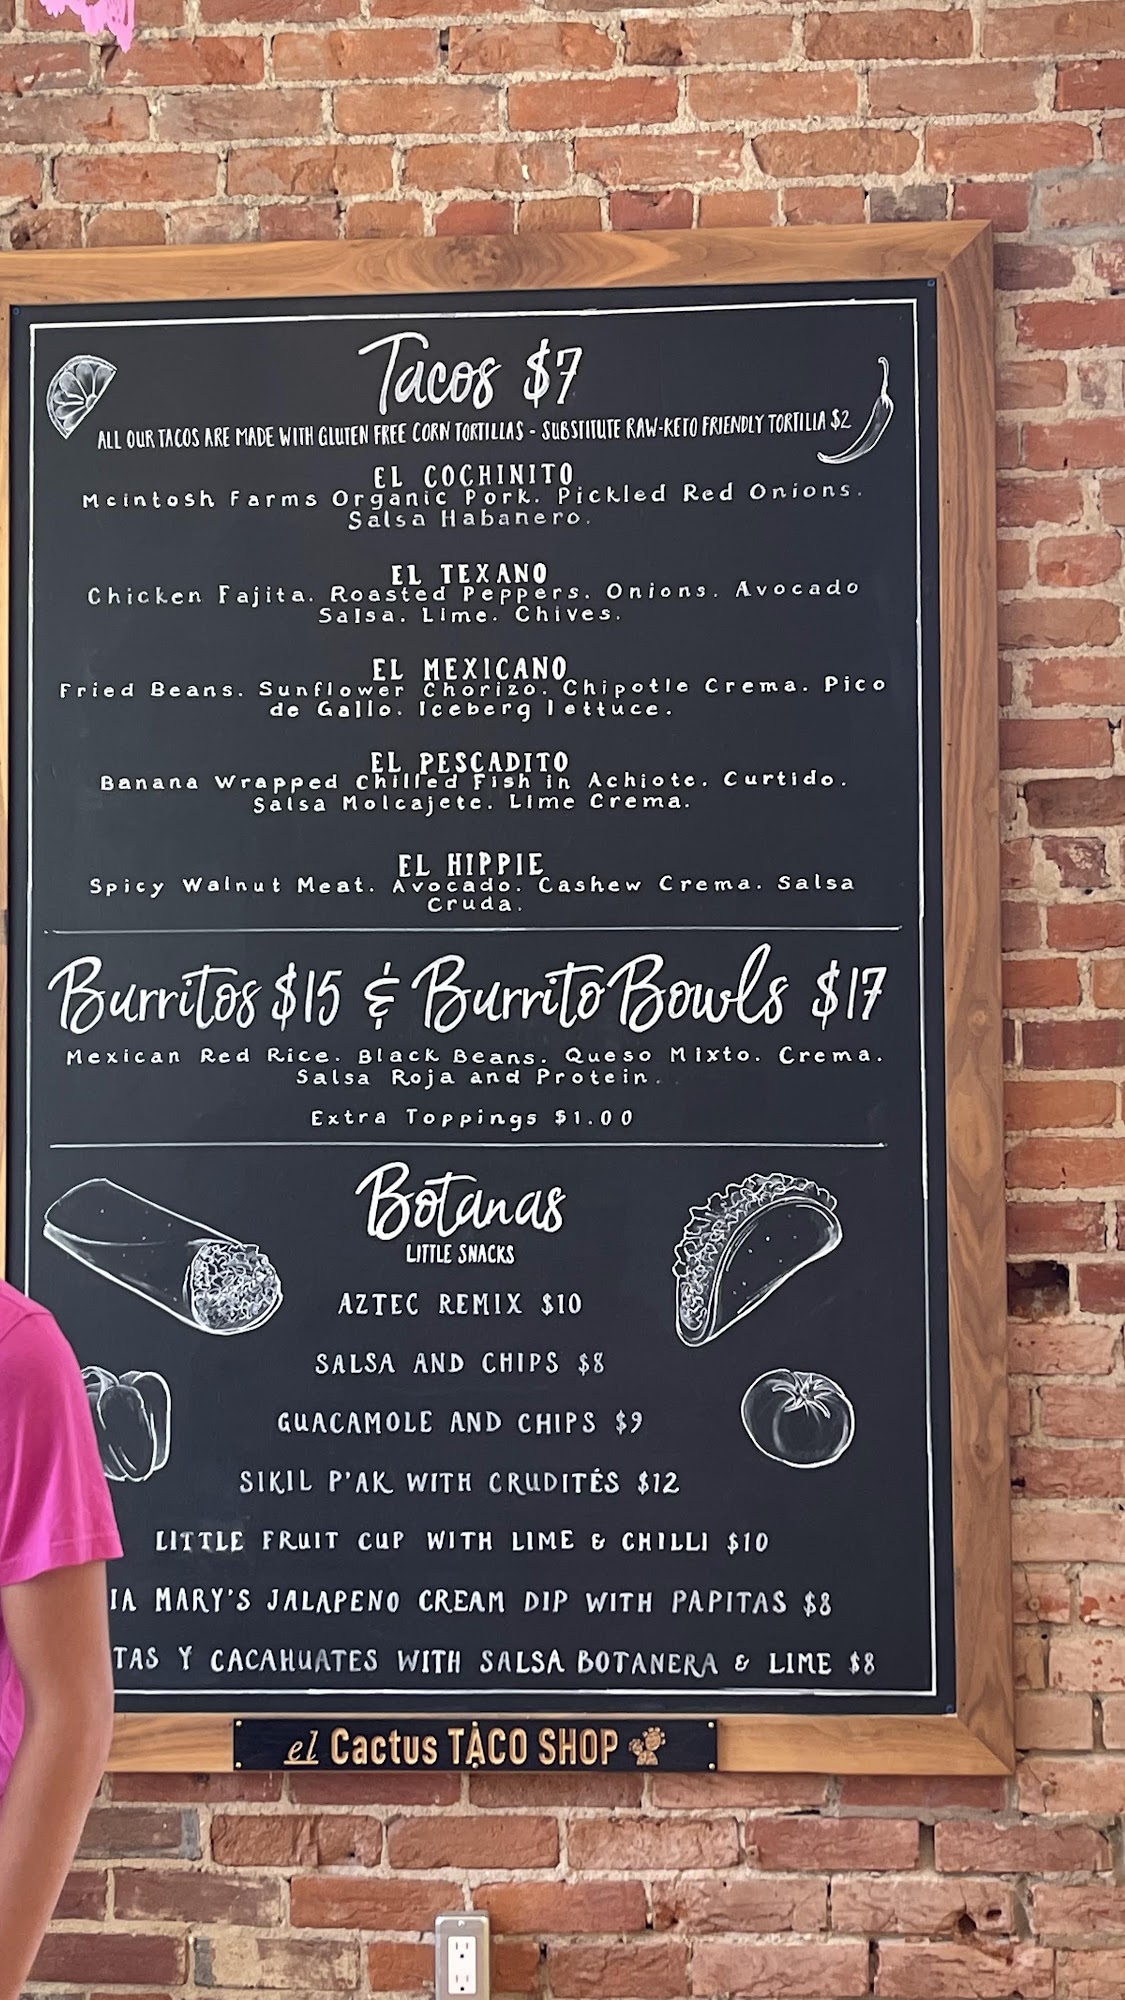 Tacos $7
ALL OUR TACOS ARE MADE WITH GLUTEN FREE CORN TORTILLAS - SUBSTITUTE RAW-KETO FRIENDLY TORTILLA $2
EL COCHINITO
Mcintosh Farms Organic Pork. Pickled Red Onions.
Salsa Habanero.
EL TEXANO
Chicken Fajita. Roasted Peppers. Onions. Avocado
Salsa. Lime. Chives.
EL MEXICANO
Fried Beans. Sunflower Chorizo. Chipotle Crema. Pico
de Gallo. Iceberg lettuce.
EL PESCADITO
Banana Wrapped Chilled Fish in Achiote. Curtido.
Salsa Molcajete. Lime Crema.
EL HIPPIE
Spicy Walnut Meat. Avocado. Cashew Crema. Salsa
Cruda.
Burritos $15 & Burrito Bowls $17
Mexican Red Rice. Black Beans. Queso Mixto. Crema.
Salsa Roja and Protein.
Extra Toppings $1.00
Botanas
LITTLE SNACKS
AZTEC REMIX $10
SALSA AND CHIPS $8
GUACAMOLE AND CHIPS $9
SIKIL P'AK WITH CRUDITÉS $12
LITTLE FRUIT CUP WITH LIME & CHILLI $10
IA MARY'S JALAPENO CREAM DIP WITH PAPITAS $8
TAS Y CACAHUATES WITH SALSA BOTANERA & LIME $8
el Cactus TACO SHOP